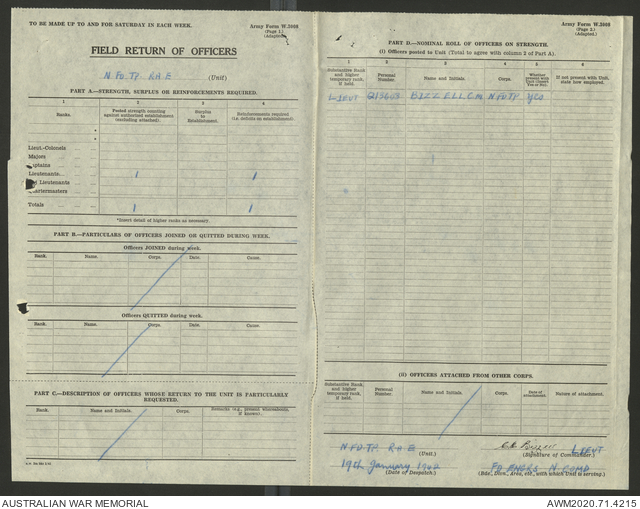 TO BE MADE UP TO AND FOR SATURDAY IN EACH WEEK.
Army Form W.3008
(Page 1.)
(Adapted.)
FIELD RETURN OF OFFICERS
N FD. TP. R.A.E (Unit)
PART A.—STRENGTH, SURPLUS OR REINFORCEMENTS REQUIRED.
1 2 3 4
Ranks. Posted strength counting against authorized establishment (excluding attached). Surplus to Establishment. Reinforcements required (i.e. deficits on establishment).
Lieut.-Colonels
Majors
Captains
Lieutenants 1 1
Lieutenants
Quartermasters
Totals 1 1
*Insert detail of higher ranks as necessary.
PART B.—PARTICULARS OF OFFICERS JOINED OR QUITTED DURING WEEK.
Officers JOINED during week.
Rank. Name. Corps. Date. Cause.
Officers QUITTED during week.
Rank. Name. Corps. Date. Cause.
PART C.—DESCRIPTION OF OFFICERS WHOSE RETURN TO THE UNIT IS PARTICULARLY REQUESTED.
Rank. Name and Initials. Corps. Remarks (e.g., present whereabouts, if known).
Army Form W.3008
(Page 2.)
(Adapted.)
PART D.—NOMINAL ROLL OF OFFICERS ON STRENGTH.
(i) Officers posted to Unit (Total to agree with column 2 of Part A).
1 2 3 4 5 6
Substantive Rank and higher temporary rank, if held. Personal Number. Name and Initials. Corps. Whether present with Unit (insert Yes or No). If not present with Unit, state how employed.
LIEUT BIZZELL C.M N FD TP. YES
(ii) OFFICERS ATTACHED FROM OTHER CORPS.
Substantive Rank and higher temporary rank, if held. Personal Number. Name and Initials. Corps. Date of Attachment. Nature of attachment.
N FD TP. R.A.E (Unit.)
LIEUT
(Signature of Commander.)
19th January 1942
(Date of Despatch.)
N. COMD
(Bde., Divn., Area, etc., with which Unit is serving.)
AUSTRALIAN WAR MEMORIAL
AWM2020.71.4215